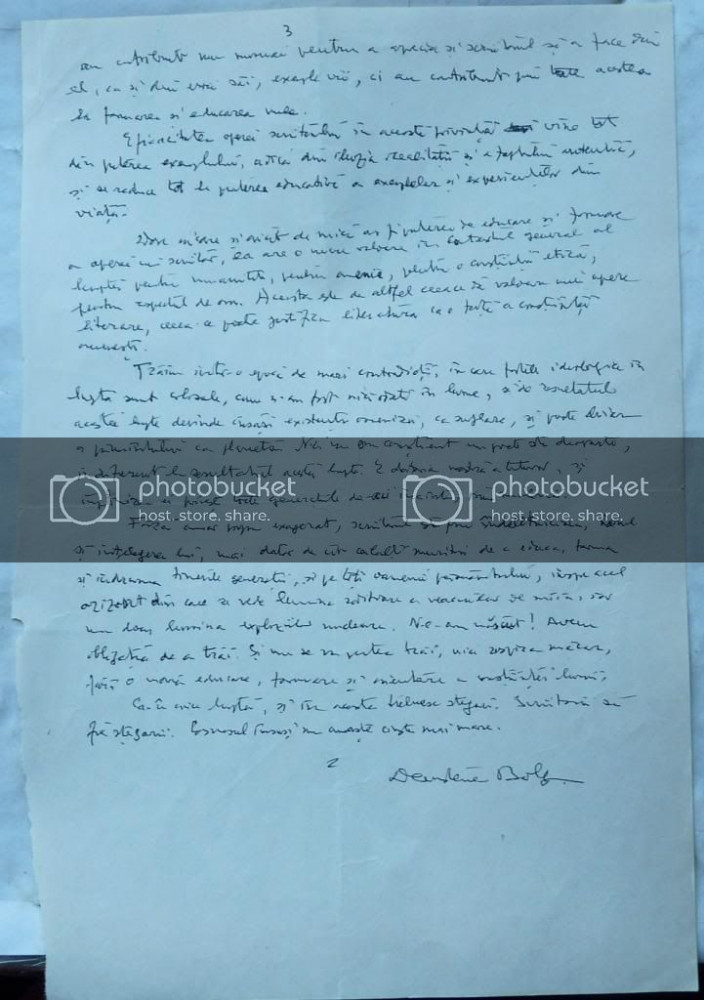 3
au contribuit nu numai pentru a aprecia și scriitorul și a face din
el, ca și din eroii săi, exemple vii, ci au contribuit prin toate acestea
la formarea și educarea mea.
Eficacitatea operei scriitorului în această privință vine tot
din puterea exemplului, adică din iluzia realității și a faptului autentic,
și se reduce tot la puterea educativă a exemplelor și experiențelor din
viață.
Dar oricare și oricât de mică ar fi puterea de educare și formare
a operei unui scriitor, ea are o mare valoare în contextul general al
luptei pentru umanitate, pentru omenie, pentru o conștiință etică,
pentru respectul de om. Aceasta este de altfel ceea ce dă valoare unei opere
literare, ceea ce poate justifica literatura ca o forță a conștiinței
omenești.
Trăim într-o epocă de mari contradicții, în care forțele ideologice în
luptă sunt colosale, cum n-au fost niciodată în lume, și de rezultatul
acestei lupte depinde însăși existența omenirii, ca suflare, și poate chiar
a pământului ca planetă. Nici un om conștient nu poate sta deoparte,
indiferent la rezultatul acestei lupte. E datoria noastră a tuturor, și
photobucket photobucket
host. store. share. host. store. share.
Fără a mai spune exagerat, scriitorul este prin îndeletnicirea,
și înțelegerea lui, mai dator de cât ceilalți muritori de a educa, forma
și îndruma tinerele generații, și pe toți oamenii pământului, înspre acel
orizont din care se vede lumina
nu doar lumina exploziilor nucleare. Ne-am născut! Avem
obligația de a trăi. Și nu se va putea trăi, nici respira măcar,
fără o nouă educare, formare și orientare a conștiinței lumii.
Ca în orice luptă, și în aceasta trebuiesc stegari. Scriitorii să
fie stegarii. Cosmosul însuși nu cunoaște cinste mai mare.
2